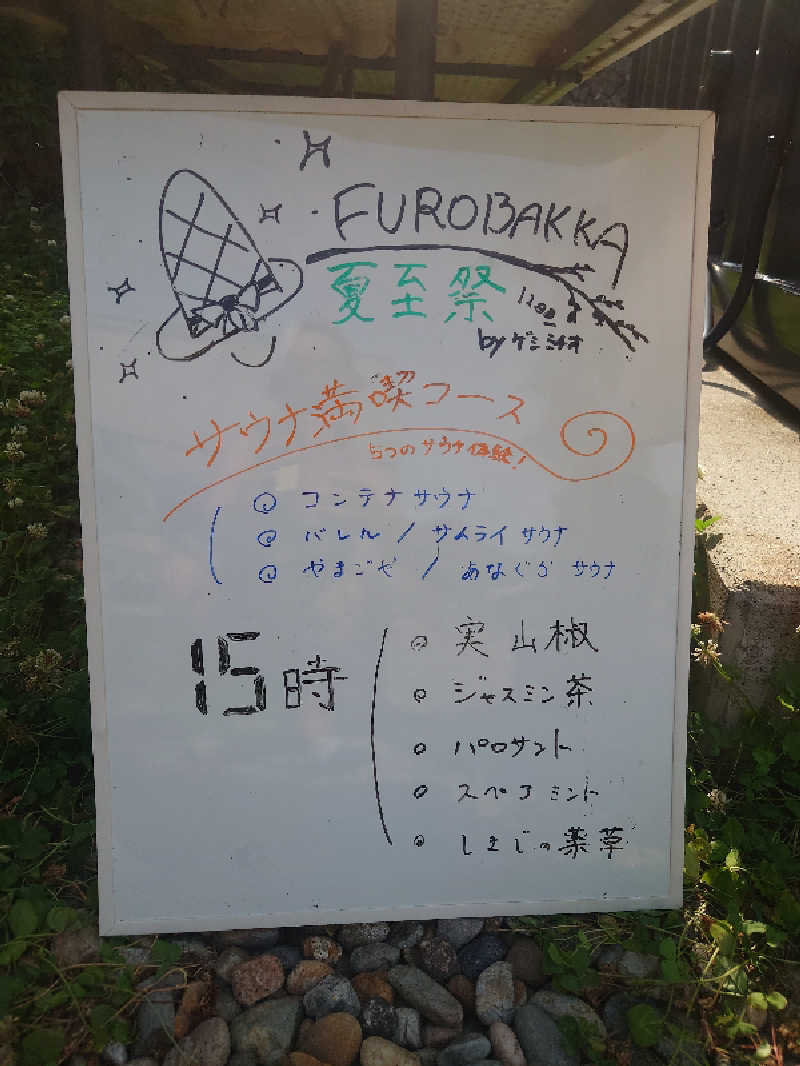 FUROBAKKA
夏至祭
by ゲミナオ
サウナ満喫コース
5つのサウナ体験!
コンテナサウナ
バレル / サムライサウナ
やまごや / あなぐらサウナ
15時
実山椒
ジャスミン茶
パロサント
スペアミント
しまじの薬草